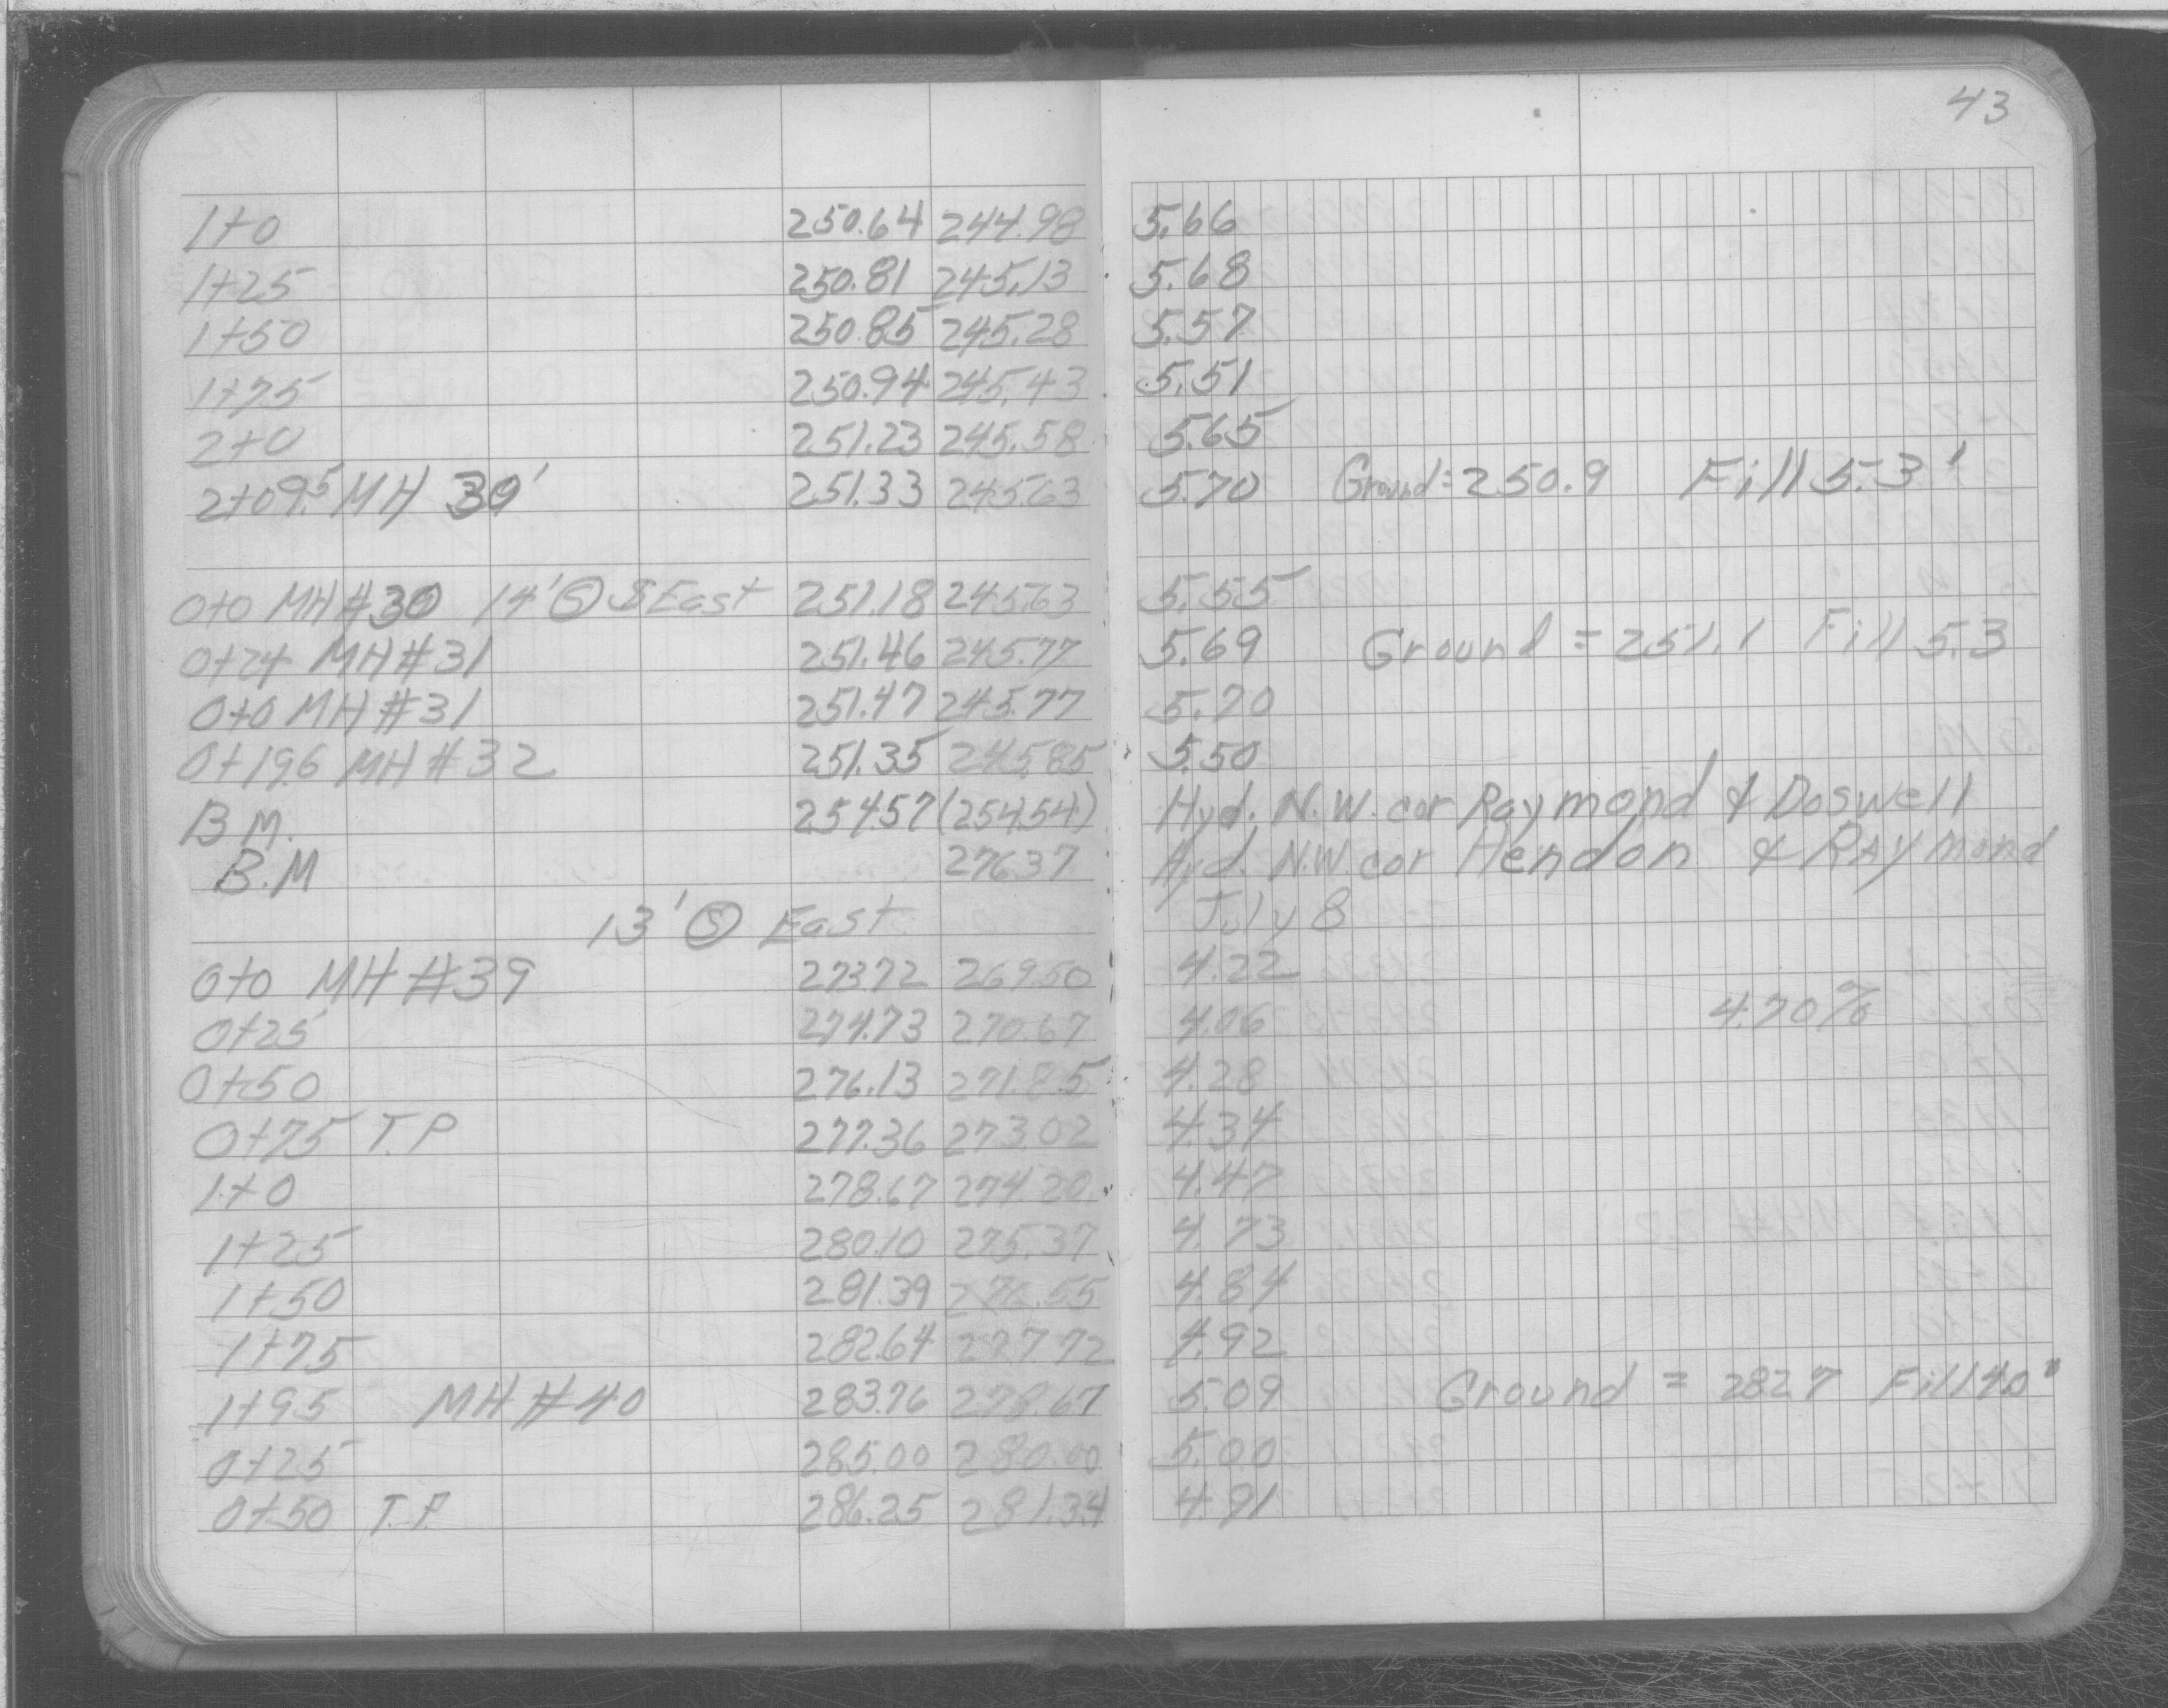 43
1+0 250.64 244.98 5.66
1+25 250.81 245.13 5.68
1+50 250.85 245.28 5.57
1+75 250.94 245.43 5.51
2+0 251.23 245.58 5.65
2+09.5 MH 30' 251.33 245.63 5.70 Ground = 250.9 Fill 5.3'
0+0 MH #30 14' Ⓢ S East 251.18 245.63 5.55
0+24 MH #31 251.46 245.77 5.69 Ground = 251.1 Fill 5.3
0+0 MH #31 251.47 245.77 5.70
0+19.6 MH #32 251.35 245.85 5.50
B M. 254.57 (254.54) Hyd. N.W. cor Raymond & Doswell
B.M 276.37 Hyd. N.W. cor Hendon & RAymond
13' Ⓢ East July 8
0+0 MH #39 273.72 269.50 4.22
0+25 274.73 270.67 4.06 4.70%
0+50 276.13 271.85 4.28
0+75 T.P 277.36 273.02 4.34
1+0 278.67 274.20 4.47
1+25 280.10 275.37 4.73
1+50 281.39 276.55 4.84
1+75 282.64 277.72 4.92
1+95 MH #40 283.76 278.67 5.09 Ground = 282.7 Fill 4.0'
0+25 285.00 280.00 5.00
0+50 T.P. 286.25 281.34 4.91